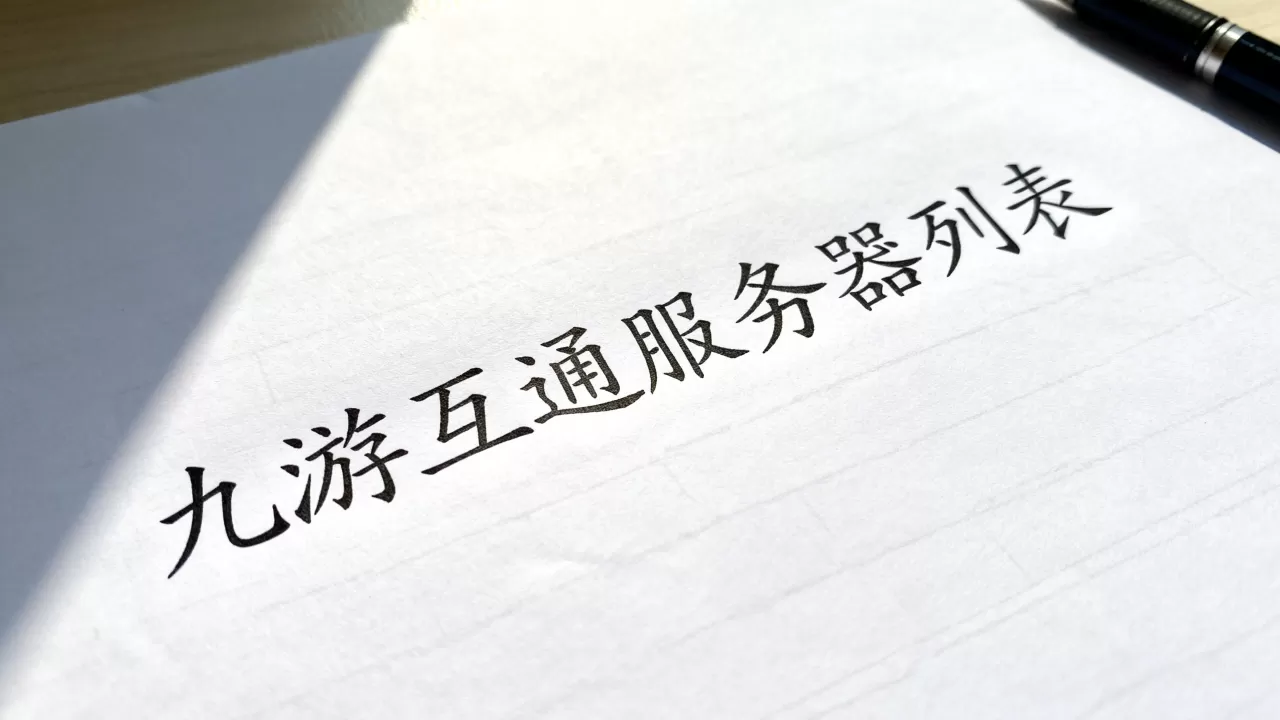 九游互通服务器列表